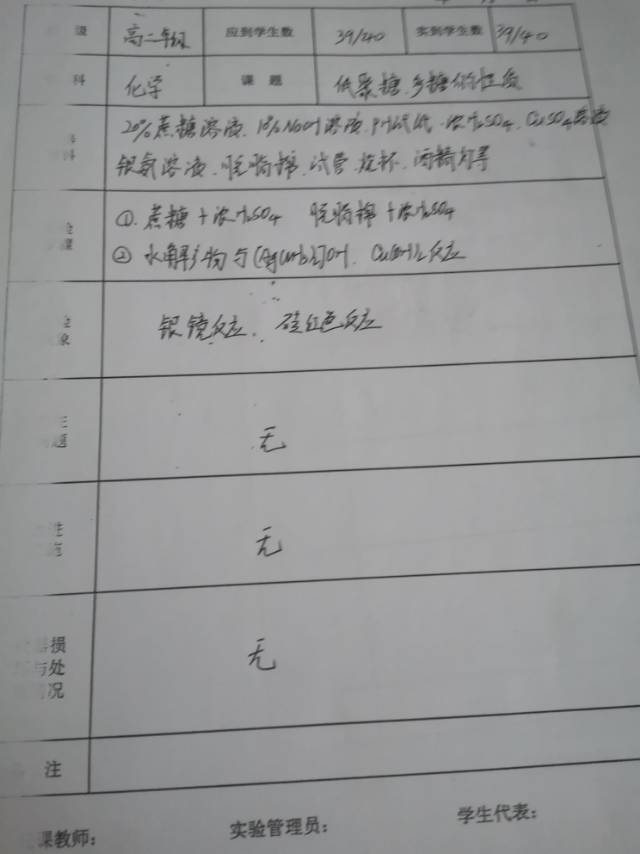 级 高二年级 应到学生数 39/40 实到学生数 39/40
科 化学 课题 低聚糖、多糖的性质
20%蔗糖溶液、10%NaOH溶液、PH试纸、浓H2SO4、CuSO4溶液
银氨溶液、脱脂棉、试管、烧杯、酒精灯等
① 蔗糖+浓H2SO4 脱脂棉+浓H2SO4
② 水解产物与[Ag(NH3)2]OH、Cu(OH)2反应
银镜反应、砖红色反应
题 无
无
损
与处 无
况
注
课教师: 实验管理员: 学生代表: